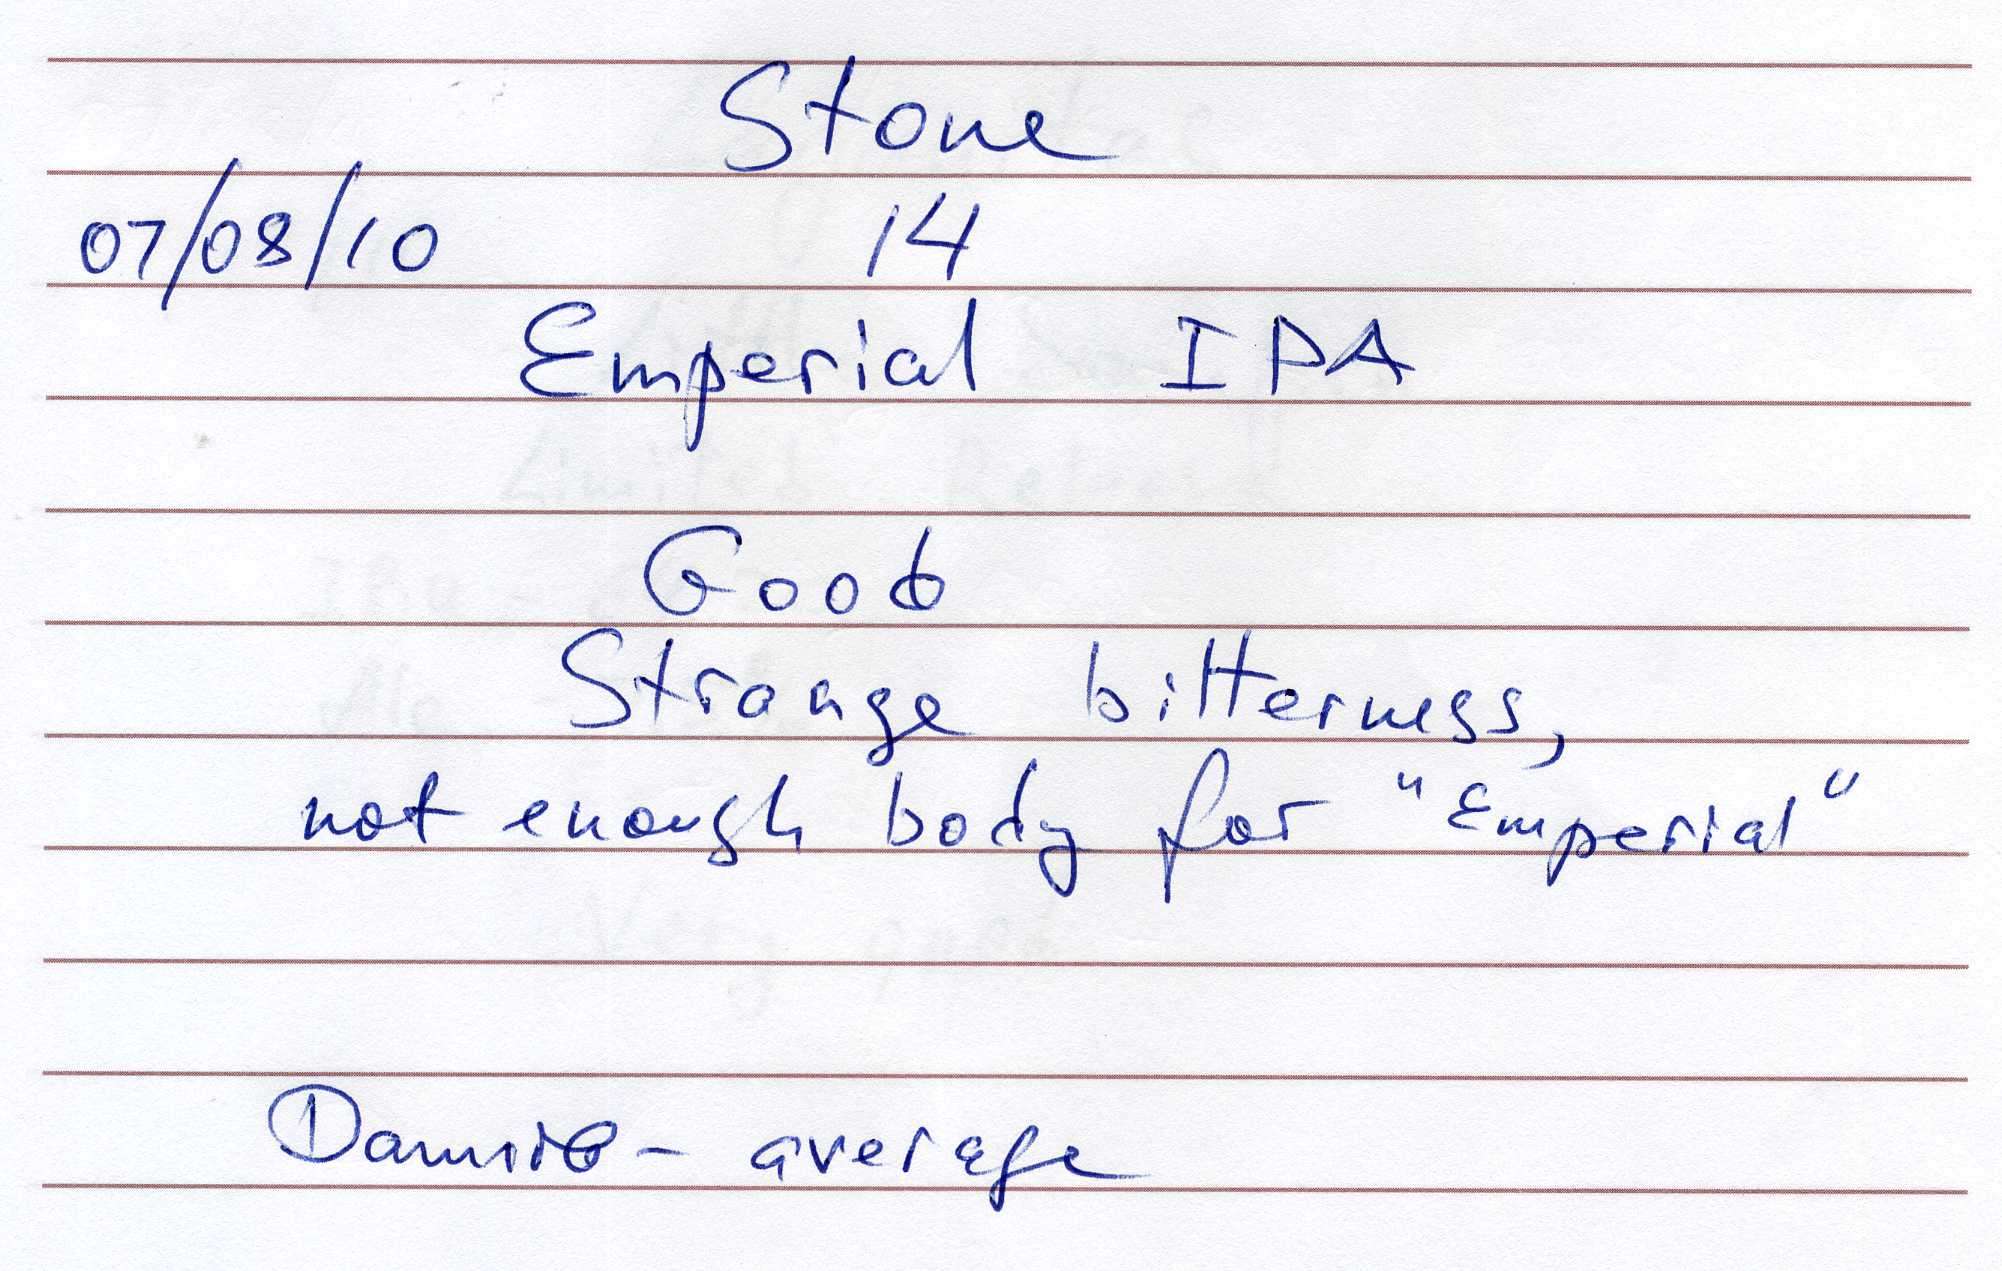 Stone
07/08/10 14
Emperial IPA
Good
Strange bitterness,
not enough body for "Emperial"
- average